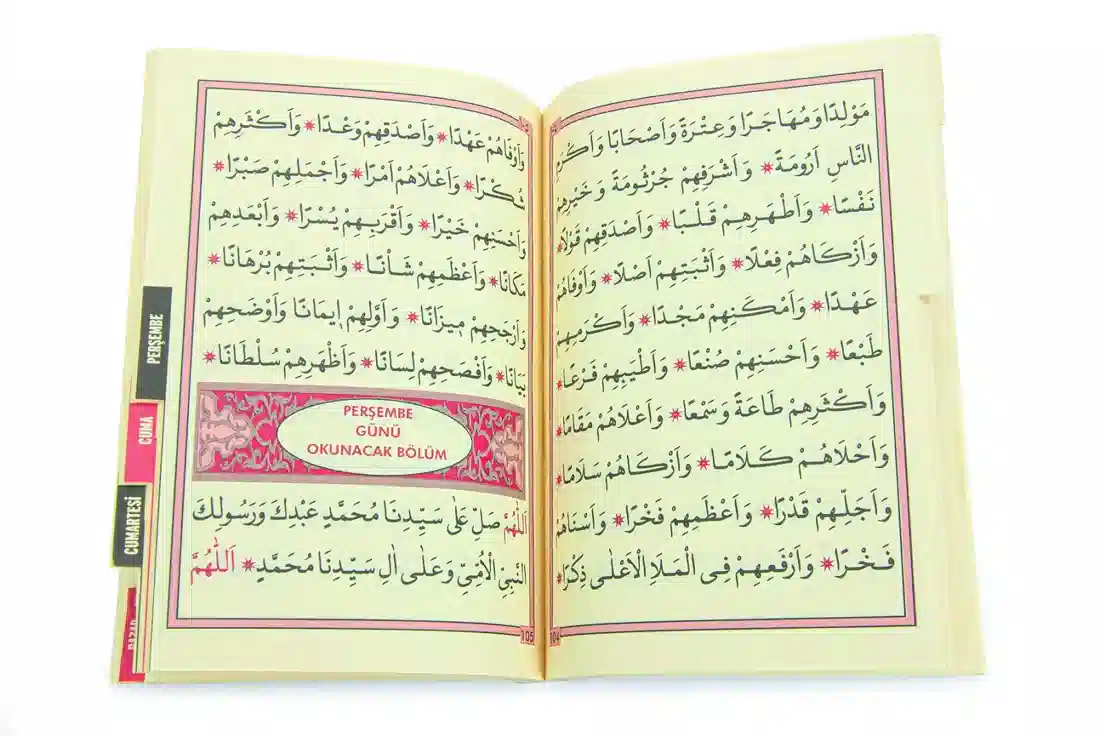 مَوْلِدًا وَمُهَاجَرًا وَعِتْرَةً وَاَصْحَابًا وَاَكْرَمِ
النَّاسِ اَرُومَةً * وَاَشْرَفِهِمْ جُرْثُومَةً وَخَيْرِهِمْ
نَفْسًا * وَاَطْهَرِهِمْ قَلْبًا * وَاَصْدَقِهِمْ قَوْلًا *
وَاَزْكَاهُمْ فِعْلًا * وَاَثْبَتِهِمْ اَصْلًا * وَاَوْفَاهُمْ
عَهْدًا * وَاَمْكَنِهِمْ مَجْدًا * وَاَكْرَمِهِمْ
طَبْعًا * وَاَحْسَنِهِمْ صُنْعًا * وَاَطْيَبِهِمْ فَرْعًا *
وَاَكْثَرِهِمْ طَاعَةً وَسَمْعًا * وَاَعْلَاهُمْ مَقَامًا *
وَاَحْلَاهُمْ كَلَامًا * وَاَزْكَاهُمْ سَلَامًا *
وَاَجَلِّهِمْ قَدْرًا * وَاَعْظَمِهِمْ فَخْرًا * وَاَسْنَاهُمْ
فَخْرًا * وَاَرْفَعِهِمْ فِى الْمَلَاِ الْاَعْلٰى ذِكْرًا *
104
وَاَوْفَاهُمْ عَهْدًا * وَاَصْدَقِهِمْ وَعْدًا * وَاَكْثَرِهِمْ
شُكْرًا * وَاَعْلَاهُمْ اَمْرًا * وَاَجْمَلِهِمْ صَبْرًا *
وَاَحْسَنِهِمْ خَيْرًا * وَاَقْرَبِهِمْ يُسْرًا * وَاَبْعَدِهِمْ
مَكَانًا * وَاَعْظَمِهِمْ شَأْنًا * وَاَثْبَتِهِمْ بُرْهَانًا *
وَاَرْجَحِهِمْ مِيزَانًا * وَاَوَّلِهِمْ اِيمَانًا وَاَوْضَحِهِمْ
بَيَانًا * وَاَفْصَحِهِمْ لِسَانًا * وَاَظْهَرِهِمْ سُلْطَانًا *
PERŞEMBE
GÜNÜ
OKUNACAK BÖLÜM
اَللّٰهُمَّ صَلِّ عَلٰى سَيِّدِنَا مُحَمَّدٍ عَبْدِكَ وَرَسُولِكَ
النَّبِيِّ الْاُمِّيِّ وَعَلٰى اٰلِ سَيِّدِنَا مُحَمَّدٍ * اَللّٰهُمَّ
105
PERŞEMBE
CUMA
CUMARTESİ